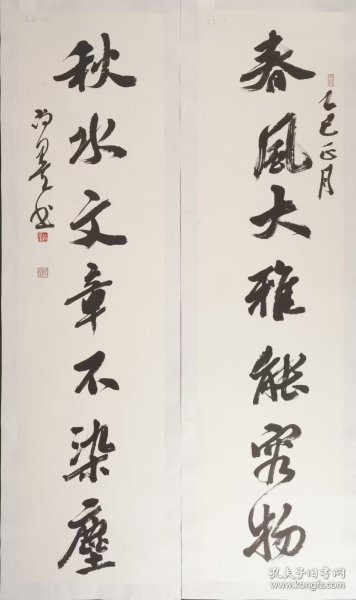 春風大雅能容物
乙巳正月
秋水文章不染塵
孔夫子旧书网
kongfz.com